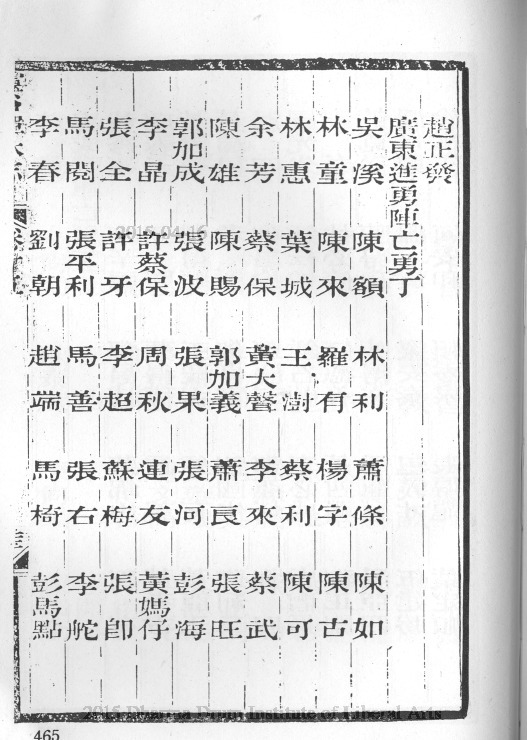 趙正發
廣東進勇陣亡勇丁
吳溪 陳額 林利 蕭條 陳如
林童 陳來 羅有 楊字 陳古
林惠 葉城 王樹 蔡利 陳可
余芳 蔡保 黃大聲 李來 蔡武
陳雄 陳賜 郭加義 蕭良 張旺
郭加成 張波 張果 張河 彭海
李晶 許蔡保 周秋 連友 黃媽仔
張全 許牙 李超 蘇梅 張卽
馬閱 張平利 馬善 張右 李舵
李春 劉朝 趙端 馬椅 彭馬點
2015.04.16
2015 Dharma Drum Institute of Liberal Arts
465